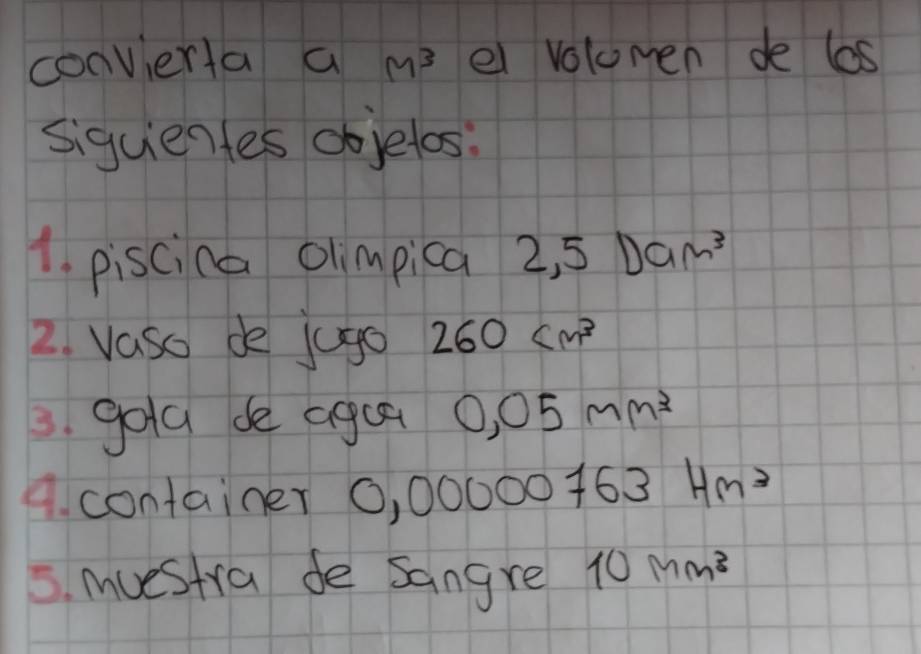 convierta a m³ el volumen de los
siguientes objetos:
1. piscina olimpica 2,5 Dam³
2. Vaso de jugo 260 cm³
3. gota de agua 0,05 mm³
4. container 0,00000763 Hm³
5. muestra de sangre 10 mm³